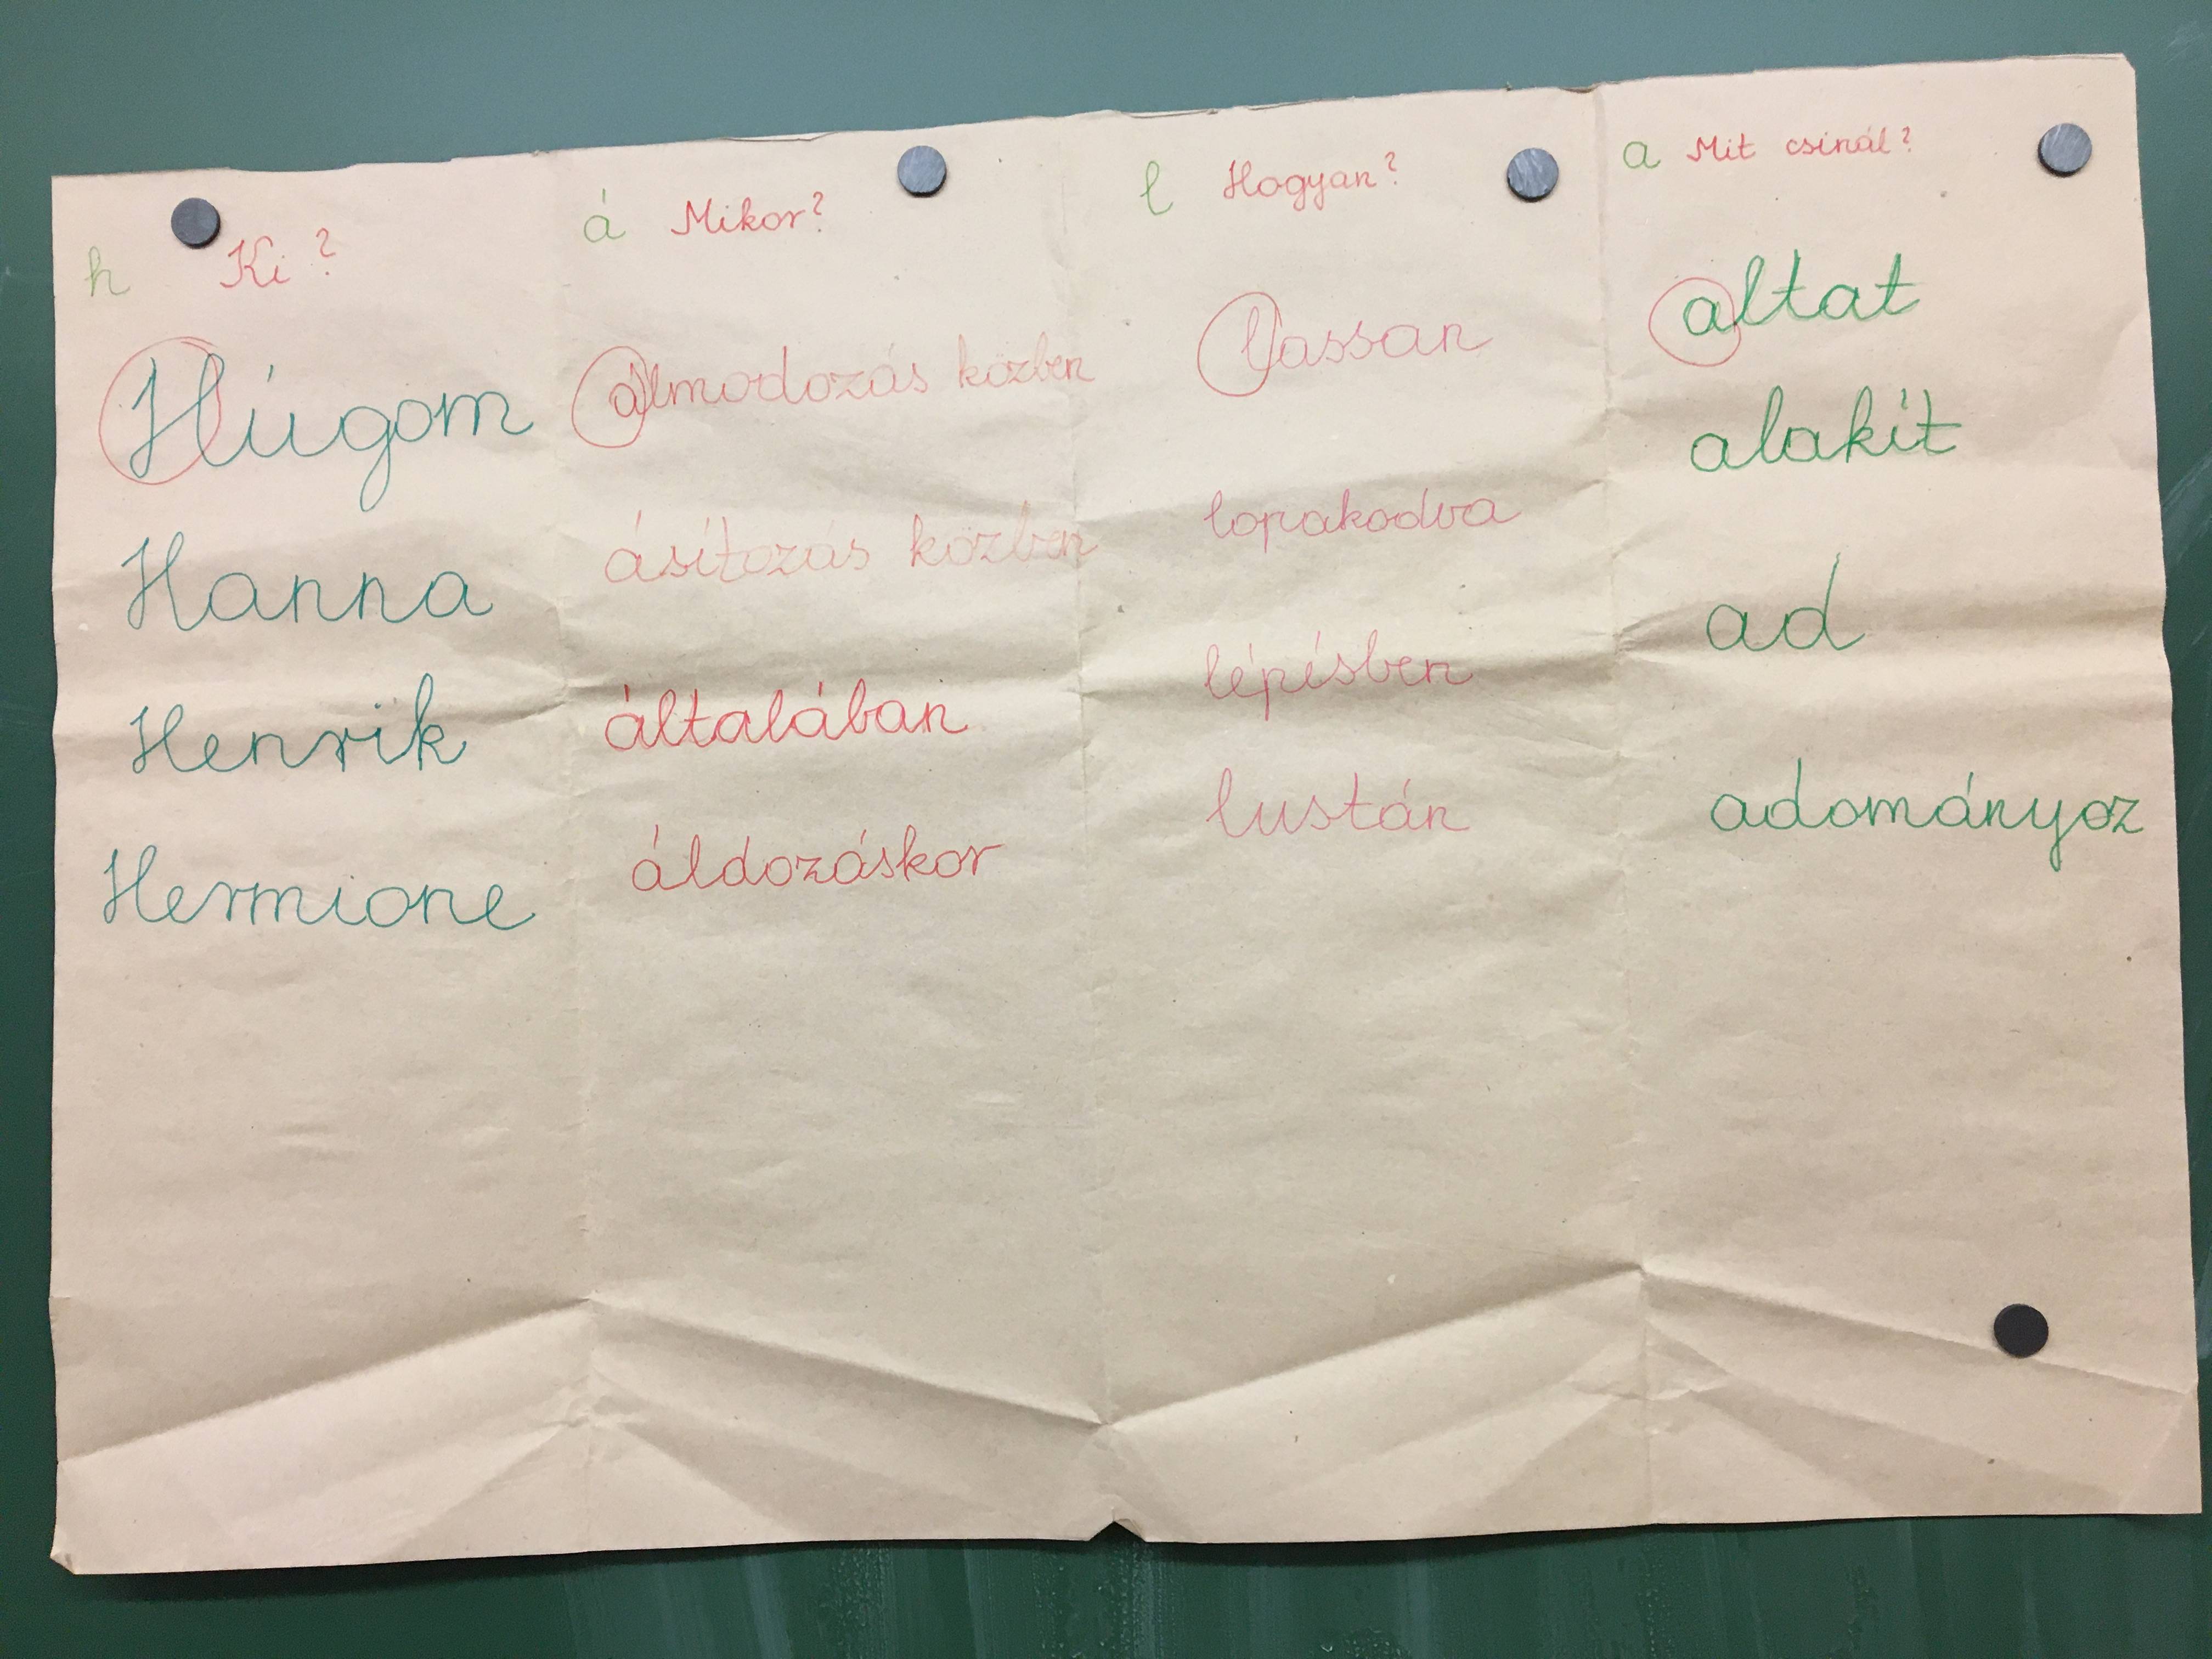 h Ki?
Húgom
Hanna
Henrik
Hermione
á Mikor?
álmodozás közben
ásítozás közben
általában
áldozáskor
l Hogyan?
lassan
lopakodva
lépésben
lustán
a Mit csinál?
altat
alakít
ad
adományoz